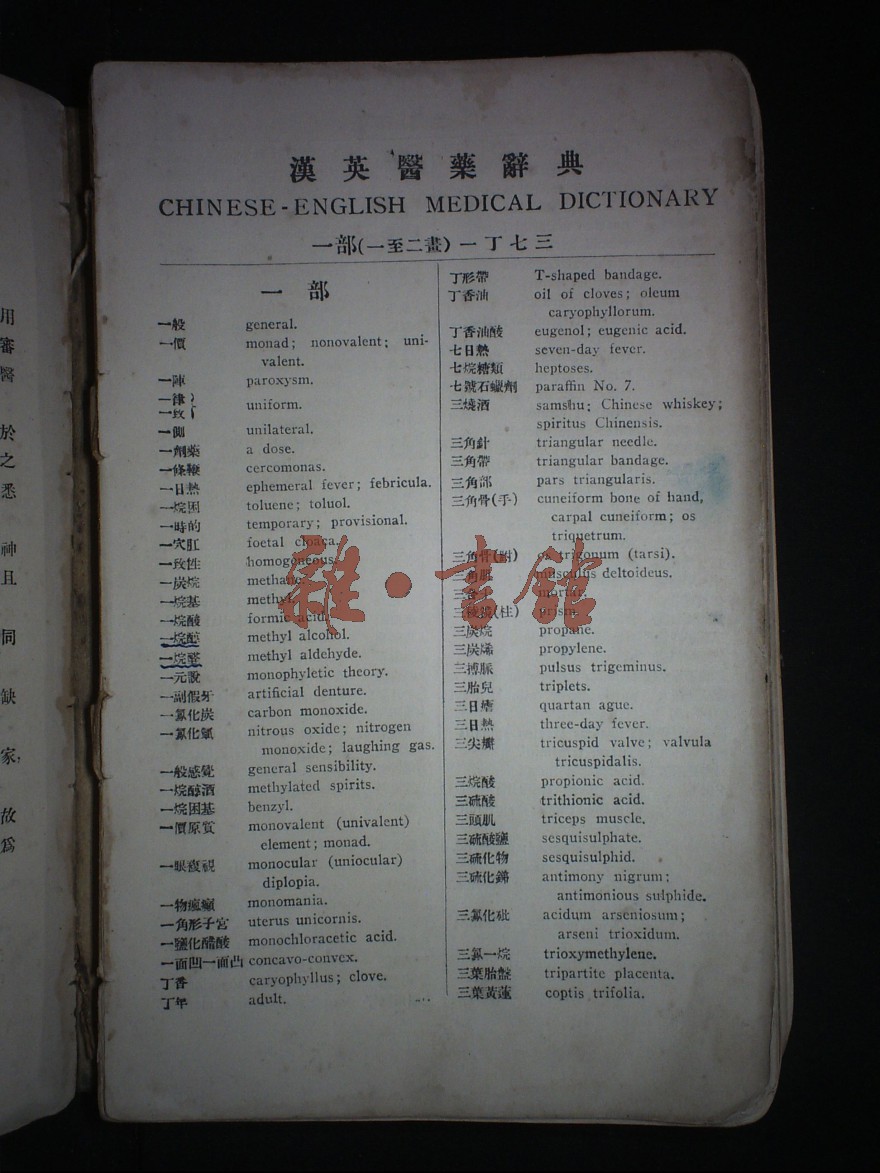 漢英醫藥辭典
CHINESE-ENGLISH MEDICAL DICTIONARY
一部(一至二畫)一丁七三
一部
一般 general.
一價 monad; nonovalent; uni-
valent.
一陣 paroxysm.
一律
一致 uniform.
一側 unilateral.
一劑藥 a dose.
一條鞭 cercomonas.
一日熱 ephemeral fever; febricula.
一烷困 toluene; toluol.
一時的 temporary; provisional.
一穴肛 foetal cloaca.
一致性 homogeneous.
一炭烷 methane.
一烷基 methyl.
一烷酸 formic acid.
一烷醇 methyl alcohol.
一烷醛 methyl aldehyde.
一元說 monophyletic theory.
一副假牙 artificial denture.
一氧化炭 carbon monoxide.
一氧化氮 nitrous oxide; nitrogen
monoxide; laughing gas.
一般感覺 general sensibility.
一烷醇酒 methylated spirits.
一烷困基 benzyl.
一價原質 monovalent (univalent)
element; monad.
一眼複視 monocular (uniocular)
diplopia.
一物瘋癲 monomania.
一角形子宮 uterus unicornis.
一鹽化醋酸 monochloracetic acid.
一面凹一面凸 concavo-convex.
丁香 caryophyllus; clove.
丁年 adult.
丁形帶 T-shaped bandage.
丁香油 oil of cloves; oleum
caryophyllorum.
丁香油酸 eugenol; eugenic acid.
七日熱 seven-day fever.
七烷糖類 heptoses.
七號石蠟劑 paraffin No. 7.
三燒酒 samshu; Chinese whiskey;
spiritus Chinensis.
三角針 triangular needle.
三角帶 triangular bandage.
三角部 pars triangularis.
三角骨(手) cuneiform bone of hand,
carpal cuneiform; os
triquetrum.
三角骨(跗) os trigonum (tarsi).
三角肌 musculus deltoideus.
三合土 mortar.
三稜鏡(柱) prism.
三炭烷 propane.
三炭烯 propylene.
三搏脈 pulsus trigeminus.
三胎兒 triplets.
三日瘧 quartan ague.
三日熱 three-day fever.
三尖瓣 tricuspid valve; valvula
tricuspidalis.
三烷酸 propionic acid.
三硫酸 trithionic acid.
三頭肌 triceps muscle.
三硫酸鹽 sesquisulphate.
三硫化物 sesquisulphid.
三硫化銻 antimony nigrum;
antimonious sulphide.
三氧化砒 acidum arseniosum;
arseni trioxidum.
三氧一烷 trioxymethylene.
三葉胎盤 tripartite placenta.
三葉黃蓮 coptis trifolia.
雜·書館
用
審
醫
於
之
悉
神
且
同
缺
家,
故
爲